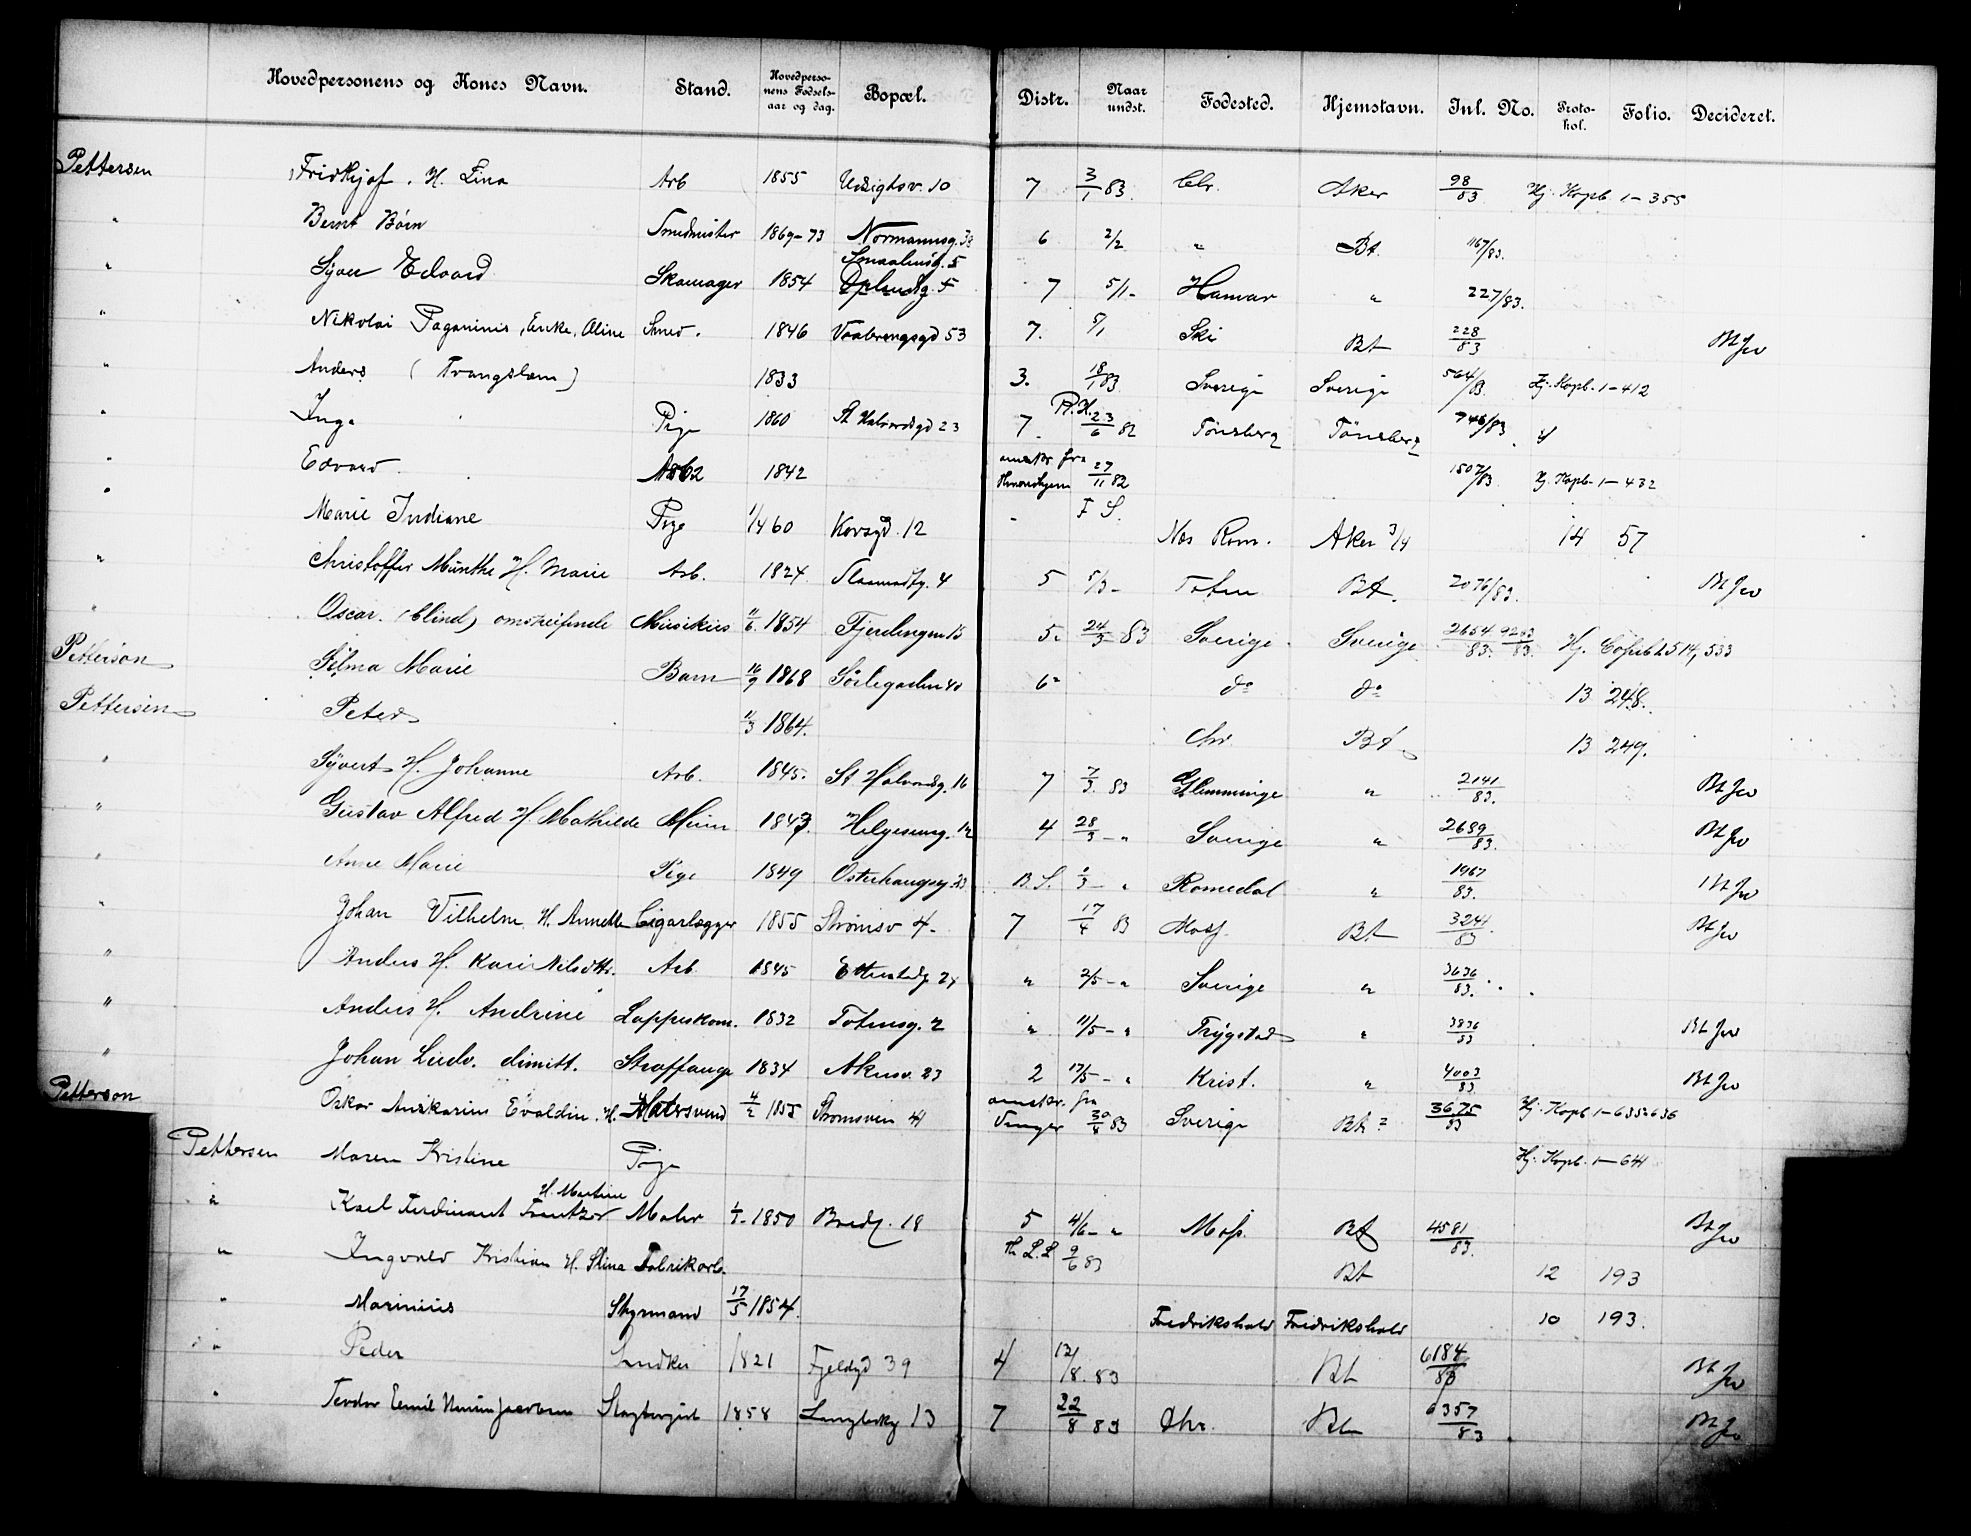 Hovedpersonens og Kones Navn. Stand. Hovedperso-nens Fødsels-aar og dag. Bopæl. Distr. Naar undst. Fødested. Hjemstavn. Inl. No. Proto-kol. Folio. Decideret.
Pettersen Fridthjof. H. Lina Arb 1855 Udsigtsv. 10 7 3/1 83. Chr. Aker 98/83 Hj. Kopb. 1-355
" Bernt Børn Smedmester 1869-73 Normannsg. 6 2/2 " Bt. 1167/83.
Smaalensg. 5
" Syver Edvard Skomager 1854 Oplandsg. 5 7 5/1 - Hamar " 227/83.
" Nikolai Paganinis, Enke, Oline Smed. 1846 Vaalerengsgd 53 7. 5/1 Ski Bt 228/83 Bt Jw
" Anders (Tvangslem) 1833 3. 18/1 83 Sverige Sverige 564/83. Hj. Kopb. 1-412
" Inga Pige 1860 St Halvordsgd 23 7. R.H. 23/6 82 Tönsberg Tönsberg 746/83.
" Edvard. Arb 1842 omskr. fra 27/11 82 1507/83. Hj. Kopb. 1-432
" Marie Indiane Pige 1/4 60 Korsgd. 12 - F S. Næs Rom. Aker 3/4 14 57
" Christoffer Munthe H. Marie Arb. 1824 4 5 5/3 - Toten Bt. 2076/83. Bt Jw
" Oscar. (blind) omstreifende Musikus 11/6 1854 Fjerdingen 15 5. 24/3 - 83 Sverige. Sverige 2654/83. 9263/83. Hj. Copib 2514, 533
Petterson Hilma Marie Barn 16/9 1868 Sörligaden 40 6 do do 13 248.
Pettersen Peter 11/3 1864. Chr Bt 13 249.
" Syvert H. Johanne Arb. 1845. St Halvordsg. 16 7 7/3. 83 Glemminge " 2141/83. Bt Jw
" Gustav Alfred H. Mathilde Murer 1847. Helgesensg. 12 4 28/3 - " Sverige " 2689/83. Bt Jw
" Anne Marie Pige 1849 Osterhausg. 23 B. S. /3 - " Romedal " 1967/83. Bt Jw
" Johan Vilhelm. H. Annette Cigarlægger 1855 Strömsv 4. 7 17/4 83 Moss. Bt 3241/83. Bt Jw
" Anders H. Kari Nilsdtr. Arb. 1845 Etterstadg. 24 " 2/5 - " Sverige " 3636/83.
" Anders H. Andrine Lappeskom. 1832 Totensg. 2 " 11/5 - " Trygstad " 3836/83 Bt Jw
" Johan Ludv. dimitt. Straffange 1834 Akersv. 23 2 17/5 - " Krist. " 4003/83 Bt Jw
Petterson Oskar Anskarius Evaldin. H. Malersvend 4/2 1855 Strömsvein 4 omskr. fra Vinger 30/8 83 Sverige Bt ? 3675/83 Hj. Kopb 1-635 636
Pettersen Maren Kristine Pige Hj. Kopb. 1-641
H. Martine
" Karl Ferdinant Frantzer Maler 1/1 - 1850 Bredg. 18 5 4/6 - " Moss. Bt 4581/83. Bt Jw
" Ingvald Kristian H. Stina Fabrikarb. Th L. L 9/6 83 Bt 12 193
" Marinius Styrmand 17/5 1854. Fredrikshald Fredrikshald 10 193.
" Peder Snedker 1821 Fjeldgd 39 4 12/8. 83 Bt 6184/83 Bt Jw
" Teodor Emil Slagtergut 1858 13 7 22/8 83 Chr. Bt 6357/83. Bt Jw